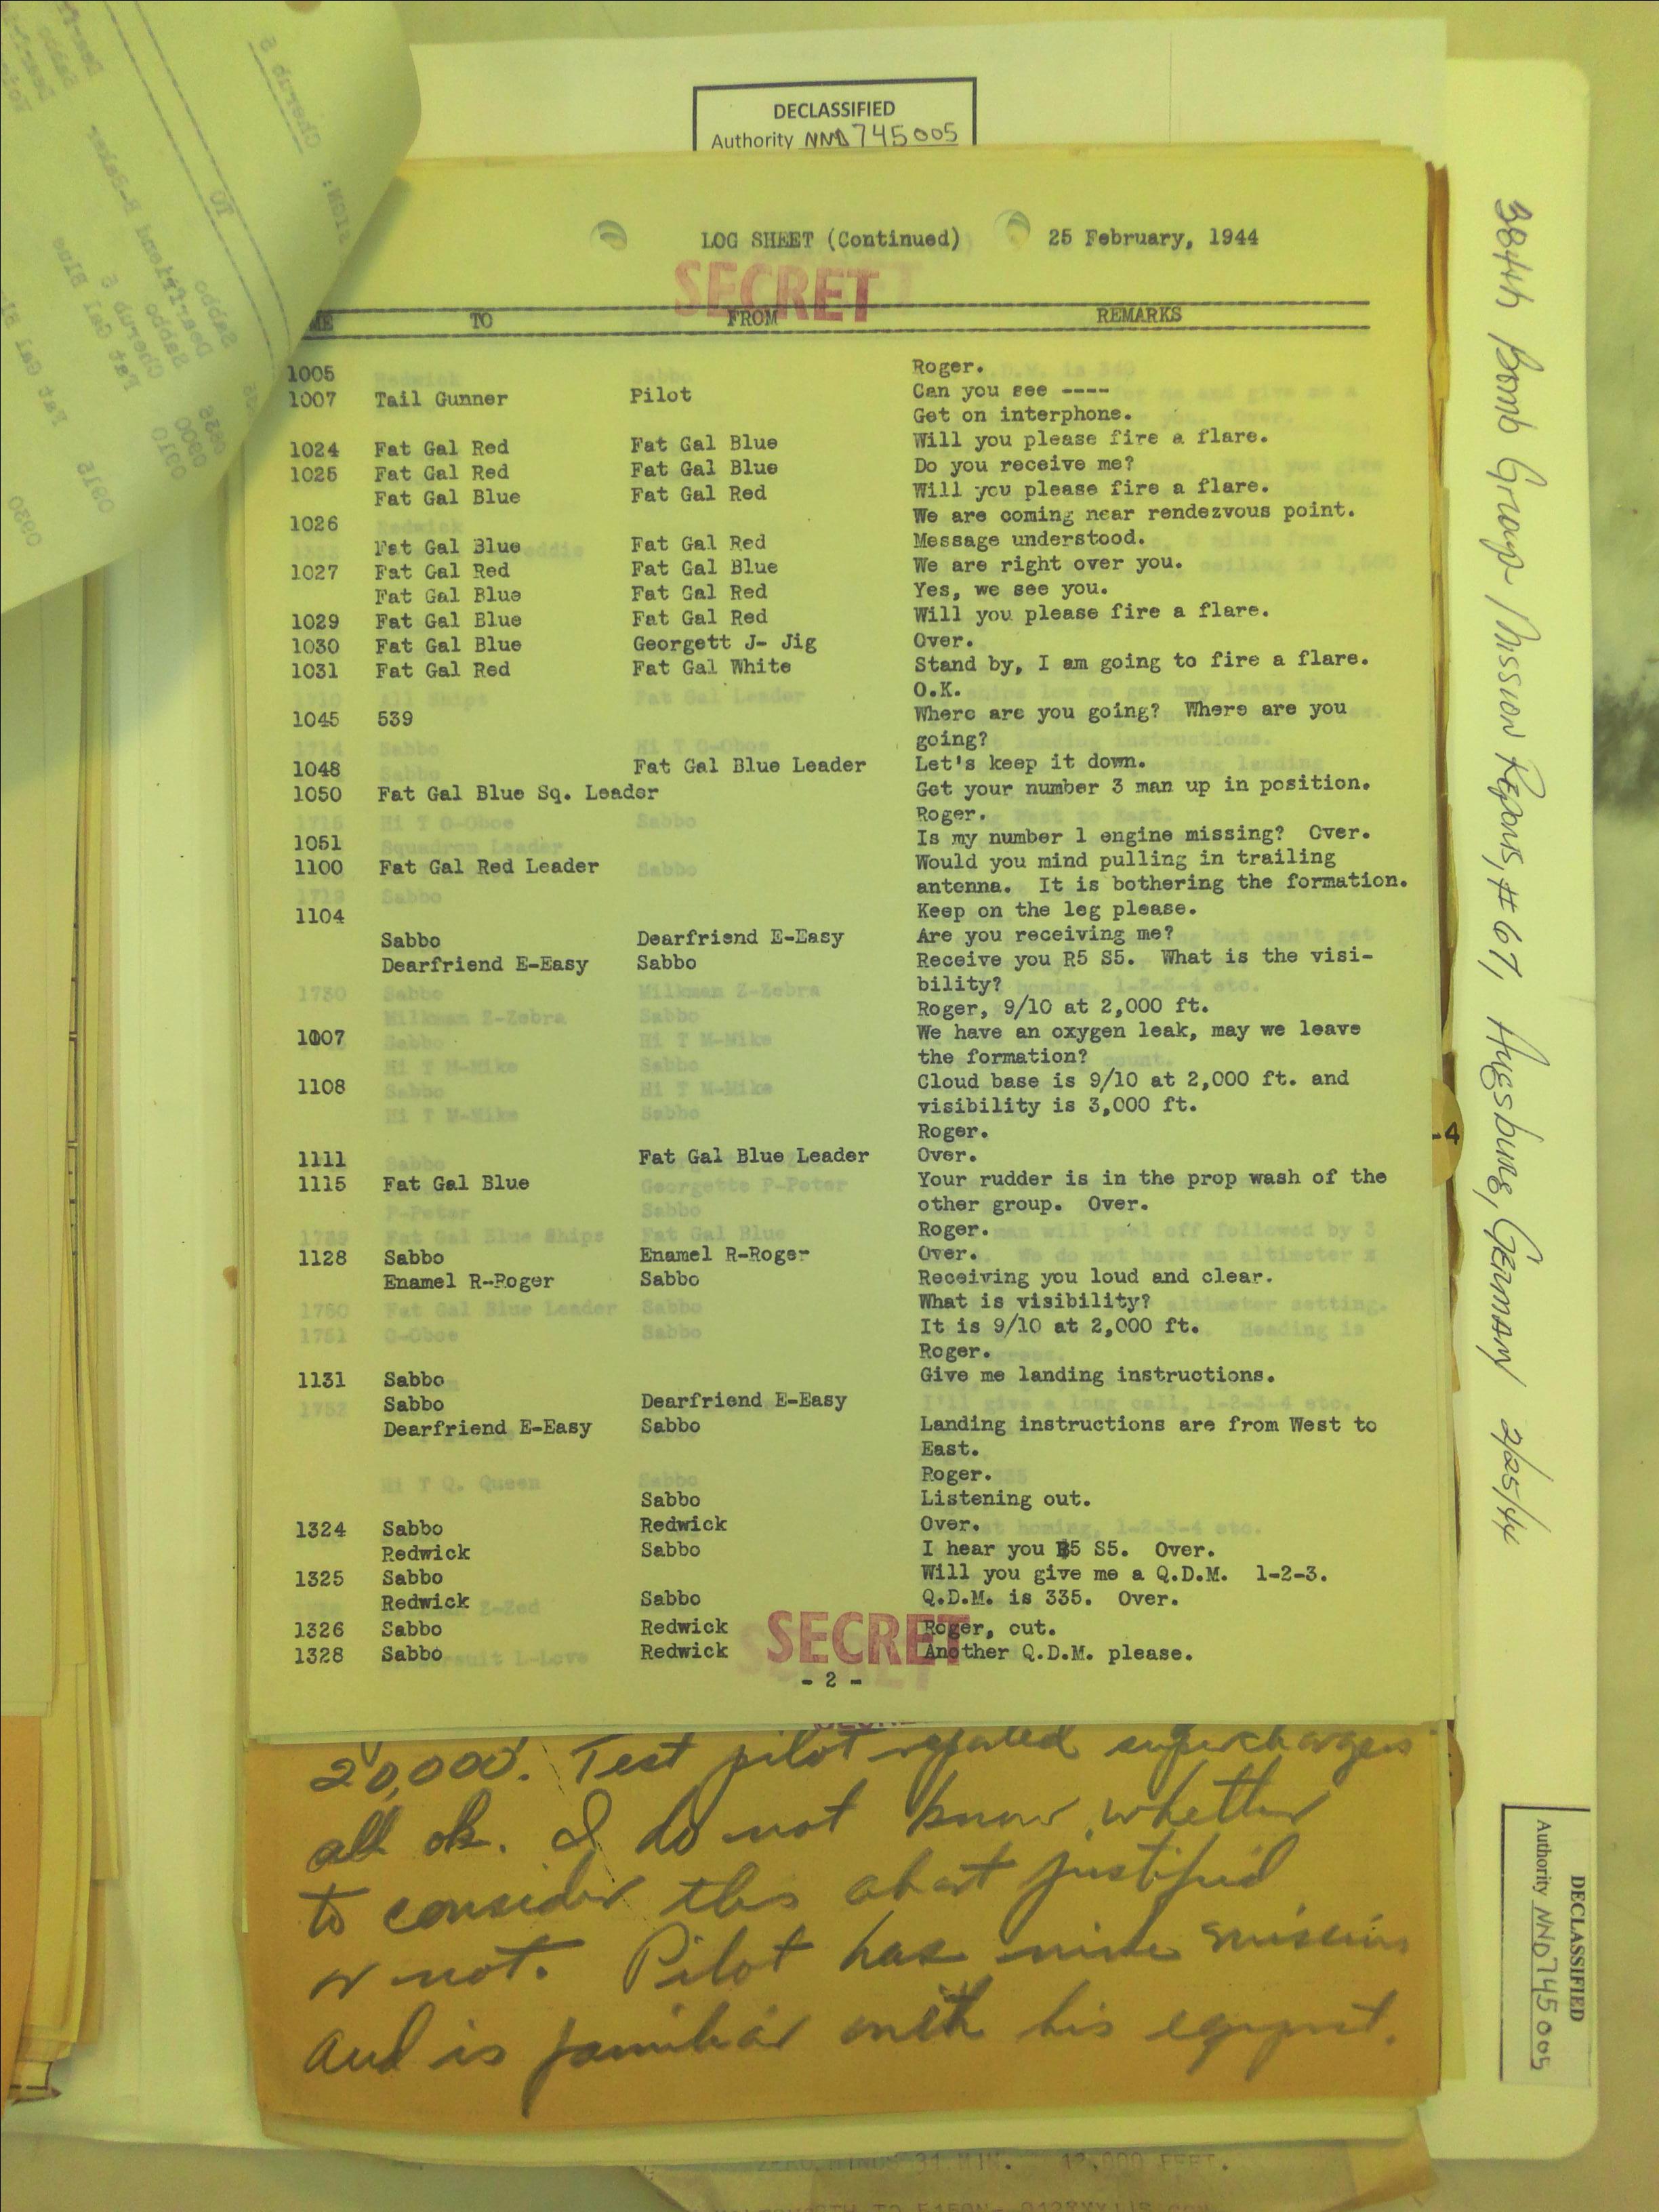 DECLASSIFIED
Authority NND 745005
LOG SHEET (Continued) 25 February, 1944
SECRET
ME TO FROM REMARKS
1005 Roger.
1007 Tail Gunner Pilot Can you see ----
Get on interphone.
1024 Fat Gal Red Fat Gal Blue Will you please fire a flare.
1025 Fat Gal Red Fat Gal Blue Do you receive me?
Fat Gal Blue Fat Gal Red Will you please fire a flare.
1026 We are coming near rendezvous point.
Fat Gal Blue Fat Gal Red Message understood.
1027 Fat Gal Red Fat Gal Blue We are right over you.
Fat Gal Blue Fat Gal Red Yes, we see you.
1029 Fat Gal Blue Fat Gal Red Will you please fire a flare.
1030 Fat Gal Blue Georgett J- Jig Over.
1031 Fat Gal Red Fat Gal White Stand by, I am going to fire a flare.
O.K.
1045 539 Where are you going? Where are you
going?
1048 Fat Gal Blue Leader Let's keep it down.
1050 Fat Gal Blue Sq. Leader Get your number 3 man up in position.
Roger.
1051 Is my number 1 engine missing? Over.
1100 Fat Gal Red Leader Would you mind pulling in trailing
antenna. It is bothering the formation.
1104 Keep on the leg please.
Sabbo Dearfriend E-Easy Are you receiving me?
Dearfriend E-Easy Sabbo Receive you R5 S5. What is the visi-
bility?
Roger, 9/10 at 2,000 ft.
1007 We have an oxygen leak, may we leave
the formation?
1108 Cloud base is 9/10 at 2,000 ft. and
visibility is 3,000 ft.
Roger.
1111 Fat Gal Blue Leader Over.
1115 Fat Gal Blue Your rudder is in the prop wash of the
other group. Over.
Roger.
1128 Sabbo Enamel R-Roger Over.
Enamel R-Roger Sabbo Receiving you loud and clear.
What is visibility?
It is 9/10 at 2,000 ft.
Roger.
1131 Sabbo Give me landing instructions.
Sabbo Dearfriend E-Easy
Dearfriend E-Easy Sabbo Landing instructions are from West to
East.
Roger.
Sabbo Listening out.
1324 Sabbo Redwick Over.
Redwick Sabbo I hear you R5 S5. Over.
1325 Sabbo Will you give me a Q.D.M. 1-2-3.
Redwick Sabbo Q.D.M. is 335. Over.
1326 Sabbo Redwick Roger, out.
1328 Sabbo Redwick Another Q.D.M. please.
SECRET
- 2 -
20,000. Test pilot reported superchargers
all ok. I do not know whether
to consider this abort justified
or not. Pilot has nine missions
and is familiar with his eqpmt.
384th Bomb Group- Mission Reports, #67, Augsburg, Germany 2/25/44
-4
DECLASSIFIED
Authority NND 745005